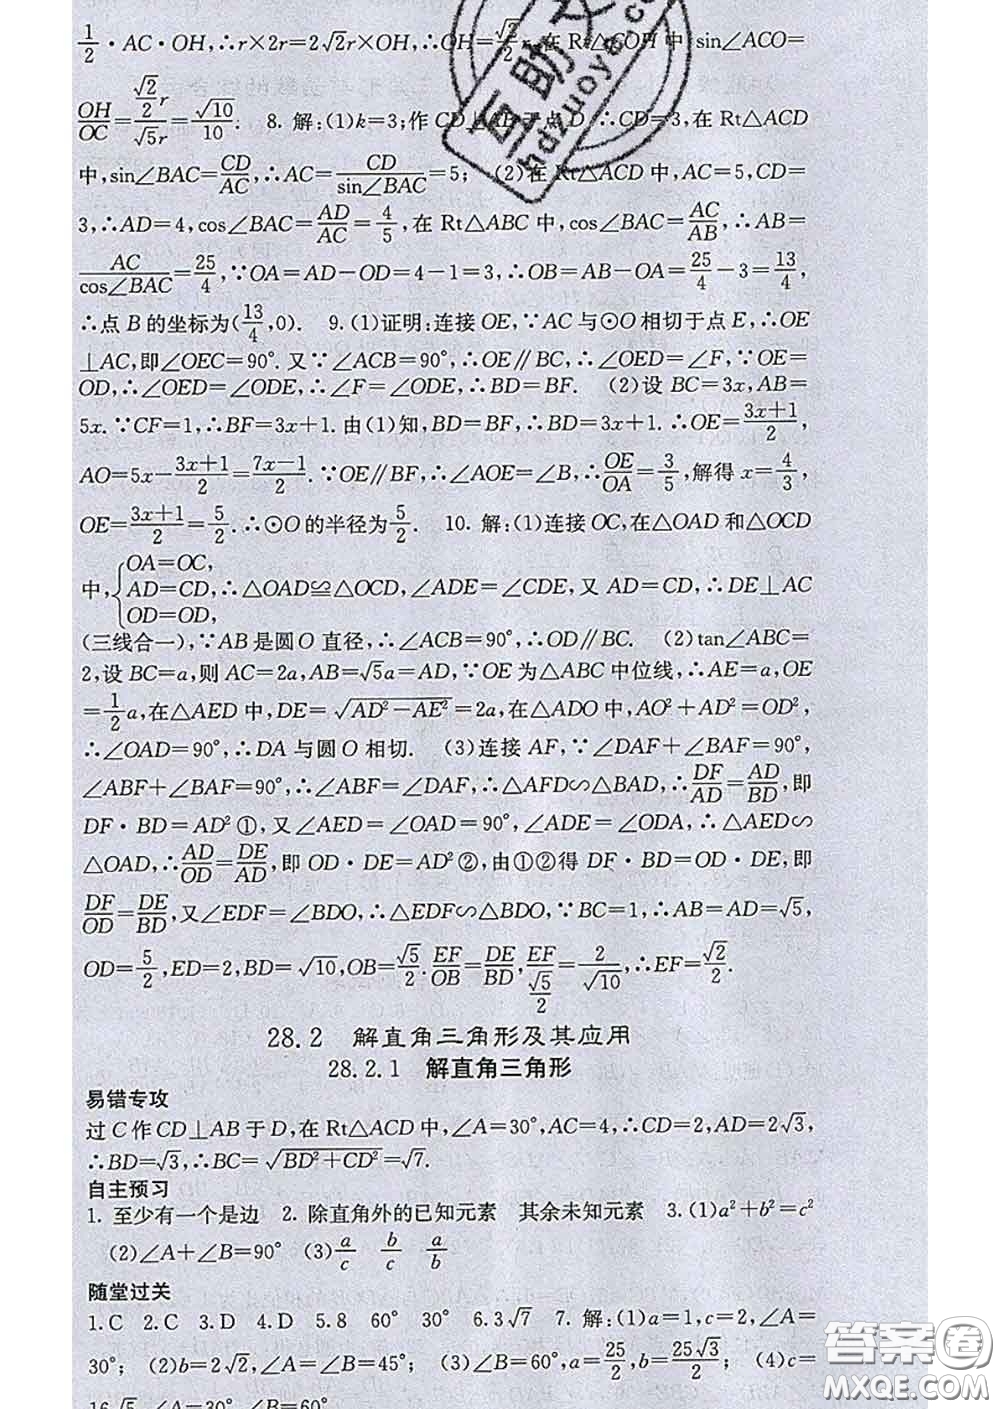 1/2·AC·OH,∴r×2r=2√2r×OH,∴OH=√2/2 r.在Rt△COH中,sin∠ACO=
OH/OC=(√2/2 r)/(√5r)=√10/10. 8. 解:(1)k=3;作CD⊥AB于点D,∴CD=3,在Rt△ACD
中,sin∠BAC=CD/AC,∴AC=CD/sin∠BAC=5; (2)在Rt△ACD中,AC=5,CD=
3,∴AD=4,cos∠BAC=AD/AC=4/5,在Rt△ABC中,cos∠BAC=AC/AB,∴AB=
AC/cos∠BAC=25/4,∵OA=AD-OD=4-1=3,∴OB=AB-OA=25/4-3=13/4,
∴点B的坐标为(13/4,0). 9.(1)证明:连接OE,∵AC与⊙O相切于点E,∴OE
⊥AC,即∠OEC=90°.又∵∠ACB=90°,∴OE∥BC,∴∠OED=∠F,∵OE=
OD,∴∠OED=∠ODE,∴∠F=∠ODE,∴BD=BF. (2)设BC=3x,AB=
5x.∵CF=1,∴BF=3x+1.由(1)知,BD=BF,∴BD=3x+1.∴OE=3x+1/2,
AO=5x-3x+1/2=7x-1/2.∵OE∥BF,∴∠AOE=∠B,∴OE/OA=3/5,解得x=4/3,
OE=3x+1/2=5/2.∴⊙O的半径为5/2. 10. 解:(1)连接OC,在△OAD和△OCD
中,{OA=OC,
AD=CD,∴△OAD≌△OCD,∠ADE=∠CDE,又AD=CD,∴DE⊥AC
OD=OD,
(三线合一),∵AB是圆O直径,∴∠ACB=90°,∴OD∥BC. (2)tan∠ABC=
2,设BC=a,则AC=2a,AB=√5a=AD,∵OE为△ABC中位线,∴AE=a,OE
=1/2a,在△AED中,DE=√(AD²-AE²)=2a,在△ADO中,AO²+AD²=OD²,
∴∠OAD=90°,∴DA与圆O相切. (3)连接AF,∵∠DAF+∠BAF=90°,
∠ABF+∠BAF=90°,∴∠ABF=∠DAF,∴△AFD∽△BAD,∴DF/AD=AD/BD,即
DF·BD=AD²①,又∠AED=∠OAD=90°,∠ADE=∠ODA,∴△AED∽
△OAD,∴AD/OD=DE/AD,即OD·DE=AD²②,由①②得DF·BD=OD·DE,即
DF/OD=DE/BD,又∠EDF=∠BDO,∴△EDF∽△BDO,∵BC=1,∴AB=AD=√5,
OD=5/2,ED=2,BD=√10,OB=√5/2.EF/OB=DE/BD,EF/(√5/2)=2/√10,∴EF=√2/2.
28.2 解直角三角形及其应用
28.2.1 解直角三角形
易错专攻
过C作CD⊥AB于D,在Rt△ACD中,∠A=30°,AC=4,∴CD=2,AD=2√3,
∴BD=√3,∴BC=√(BD²+CD²)=√7.
自主预习
1. 至少有一个是边 2. 除直角外的已知元素 其余未知元素 3.(1)a²+b²=c²
(2)∠A+∠B=90° (3)a/c b/c a/b
随堂过关
1.C 2.C 3.D 4.D 5.8 60° 30° 6.3√7 7. 解:(1)a=1,c=2,∠A=
30°; (2)b=2√2,∠A=∠B=45°; (3)∠B=60°,a=25/2,b=25√3/2; (4)c=
16√5,∠A=30°,∠B=60°
互助文
hdzuoye.c
答案圈
MXQE.COM